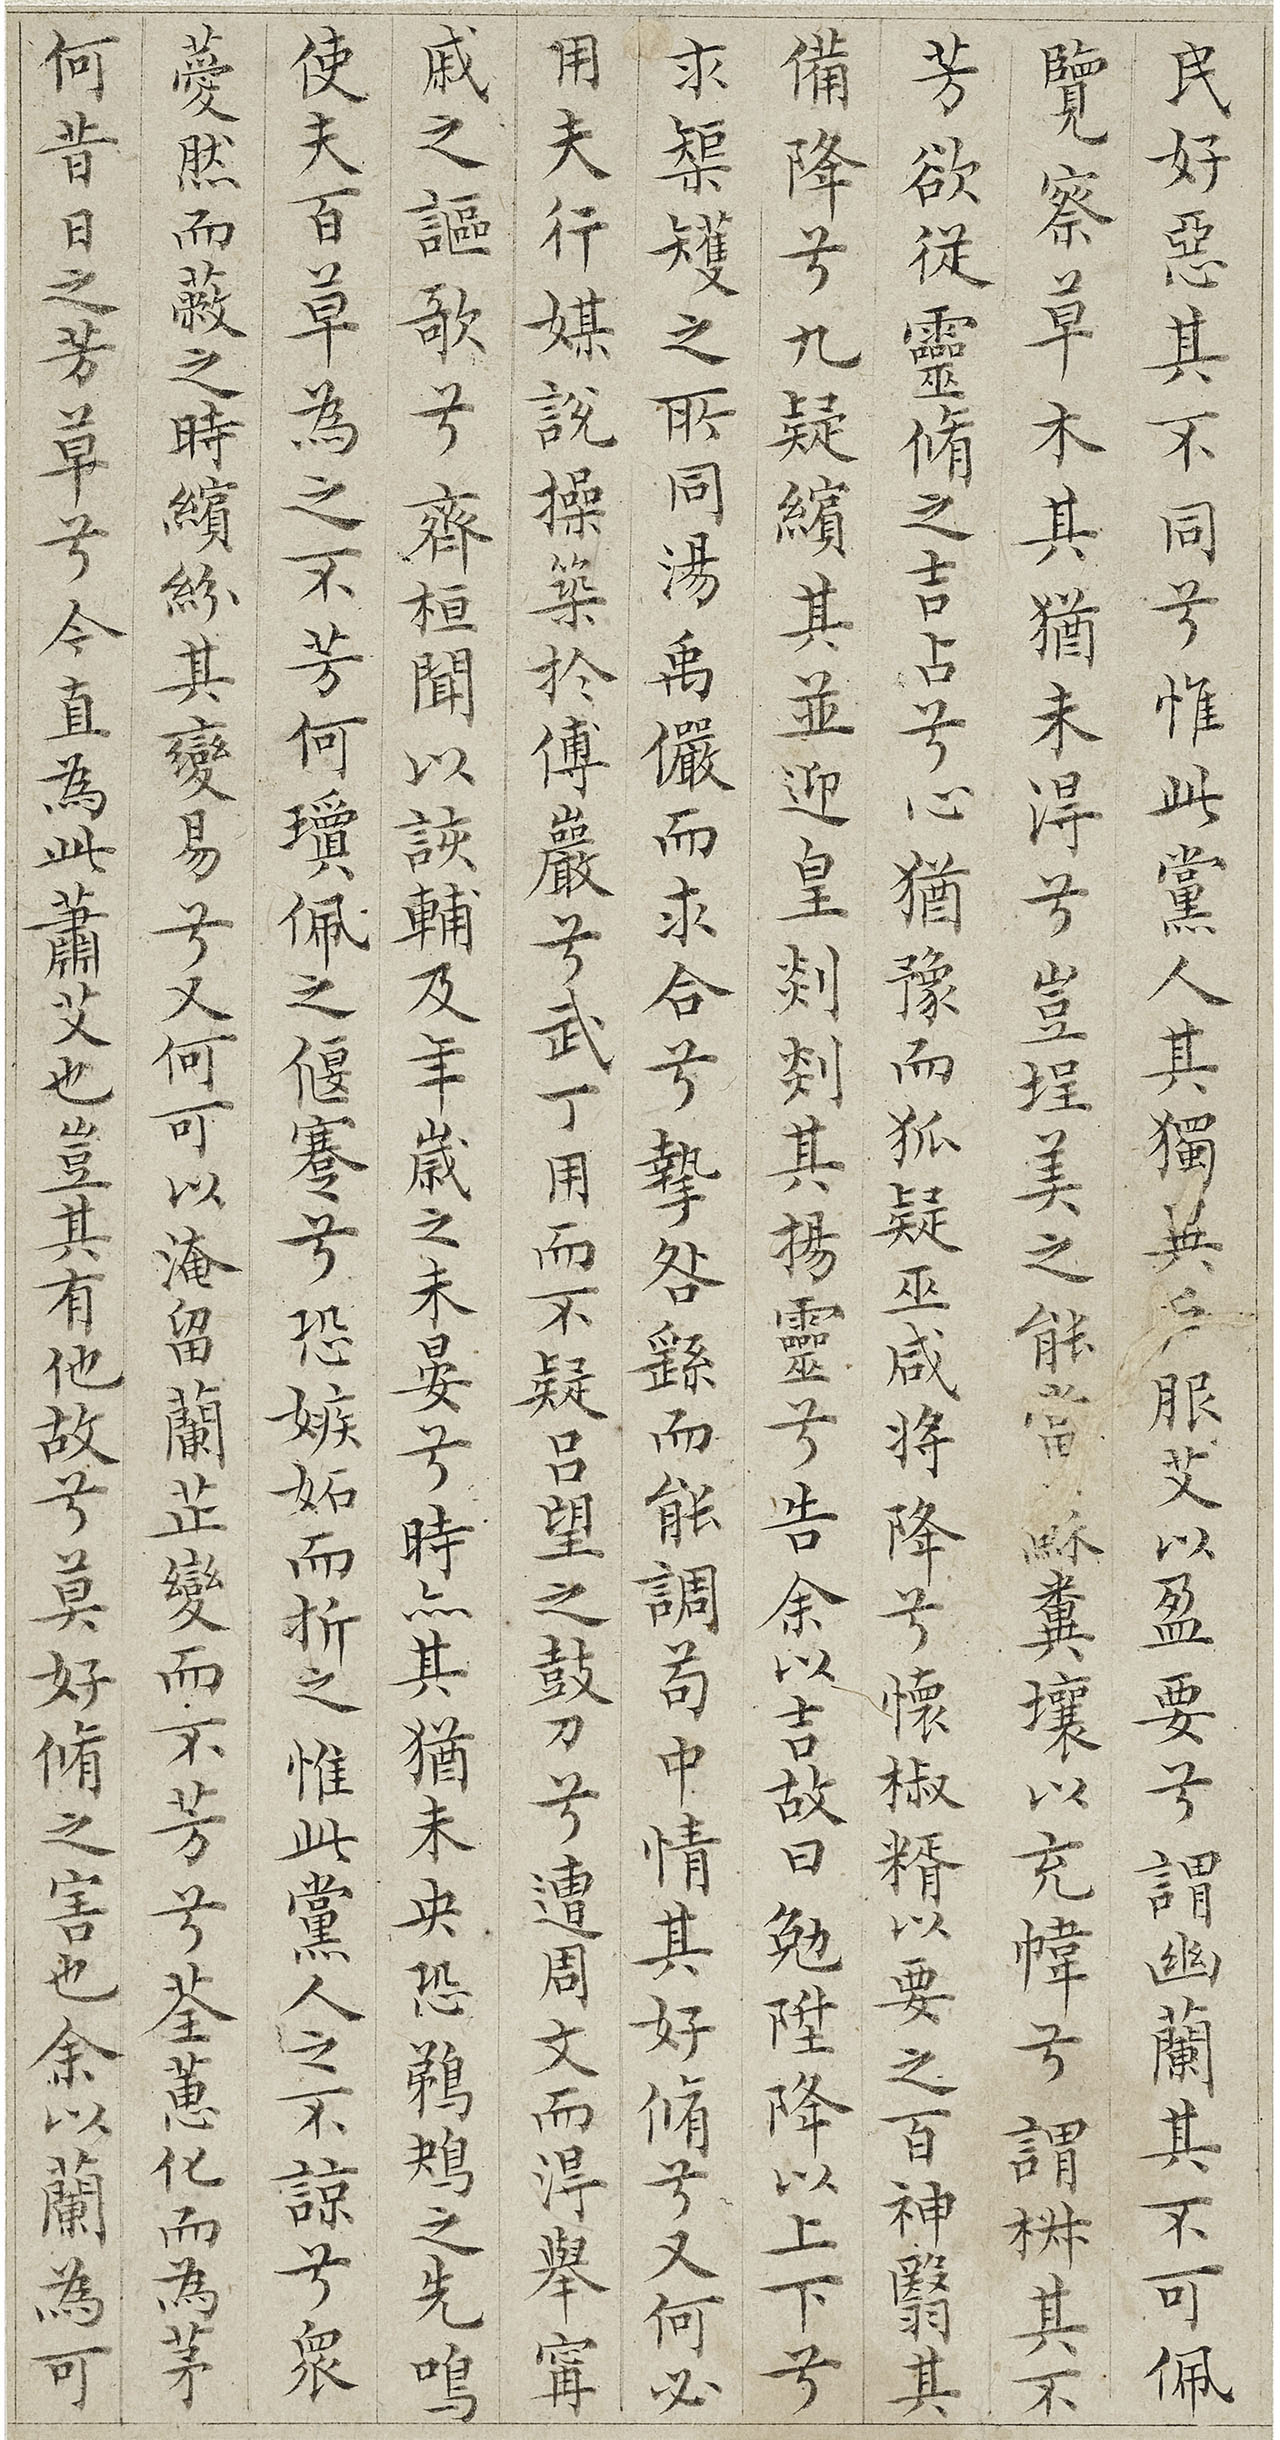 民好惡其不同兮惟此黨人其獨異戶服艾以盈要兮謂幽蘭其不可佩
覽察草木其猶未得兮豈珵美之能當蘇糞壤以充幃兮謂椒其不
芳欲從靈脩之吉占兮心猶豫而狐疑巫咸將降兮懷椒糈以要之百神翳其
備降兮九疑繽其並迎皇剡剡其揚靈兮告余以吉故曰勉陞降以上下兮
求榘矱之所同湯禹儼而求合兮摯咎繇而能調苟中情其好脩兮又何必
用夫行媒說操築於傅巖兮武丁用而不疑呂望之鼓刀兮遭周文而得舉甯
戚之謳歌兮齊桓聞以該輔及年歲之未晏兮時亦其猶未央恐鵜鴂之先鳴
使夫百草為之不芳何瓊佩之偃蹇兮恐嫉妬而折之惟此黨人之不諒兮眾
薆然而蔽之時繽紛其變易兮又何可以淹留蘭芷變而不芳兮荃蕙化而為茅
何昔日之芳草兮今直為此蕭艾也豈其有他故兮莫好脩之害也余以蘭為可